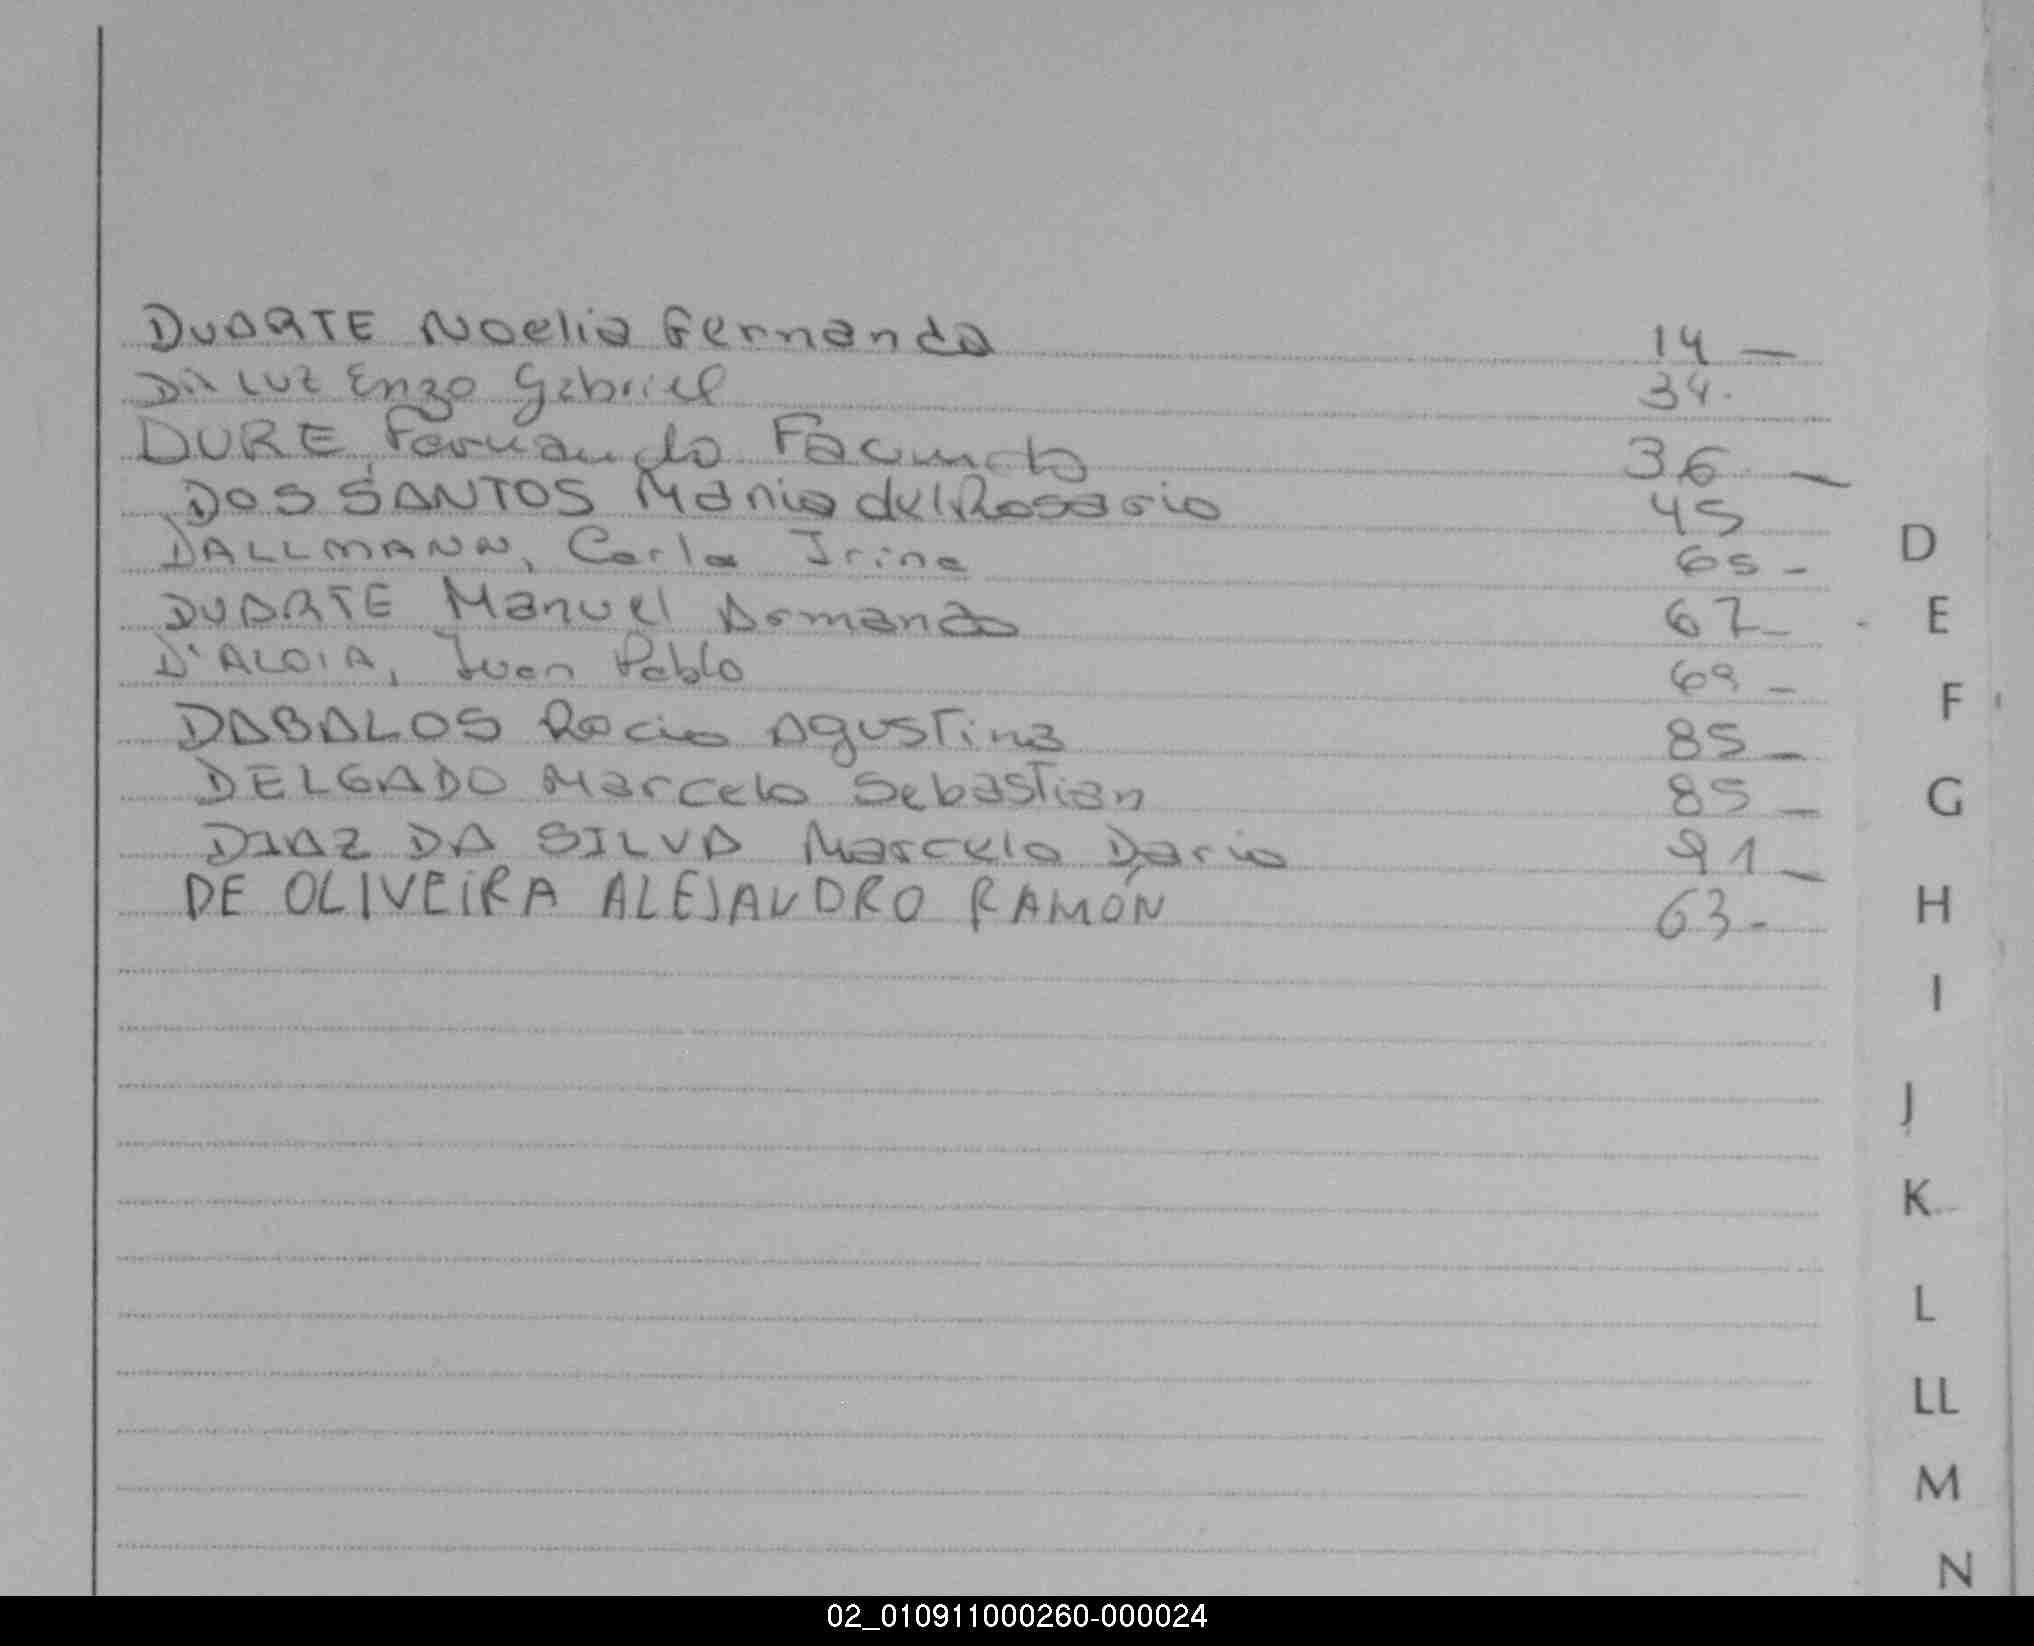 DUARTE Noelia Gernanda 14 —
DA LUZ Enzo Gabriel 34.
DURE, Fernando Facundo 36 —
DOS SANTOS Maria del Rosario 45
DALLMANN, Carla Irina 65 -
DUARTE Manuel Armando 67 -
D'ALOIA, Juan Pablo 69 -
DABALOS Rocio Agustina 85 -
DELGADO Marcelo Sebastian 85 -
DIAZ DA SILVA Marcelo Dario 91 -
DE OLIVEIRA ALEJANDRO RAMÓN 63 -
D
E
F
G
H
I
J
K
L
LL
M
N
02_010911000260-000024